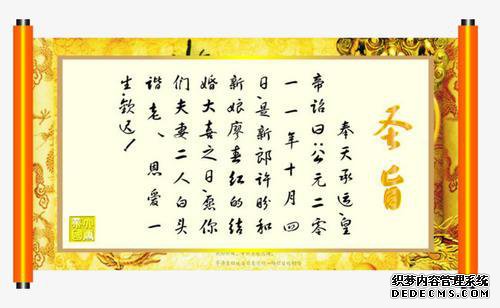 圣旨
奉天承运皇
帝诏曰公元二零
一一年十月四
日是新郎许盼和
新娘廖红的结
婚大喜之日愿你
们夫妻二人白头
谐老、恩爱一
生钦
织梦内容管理系统
DEDECMS.COM